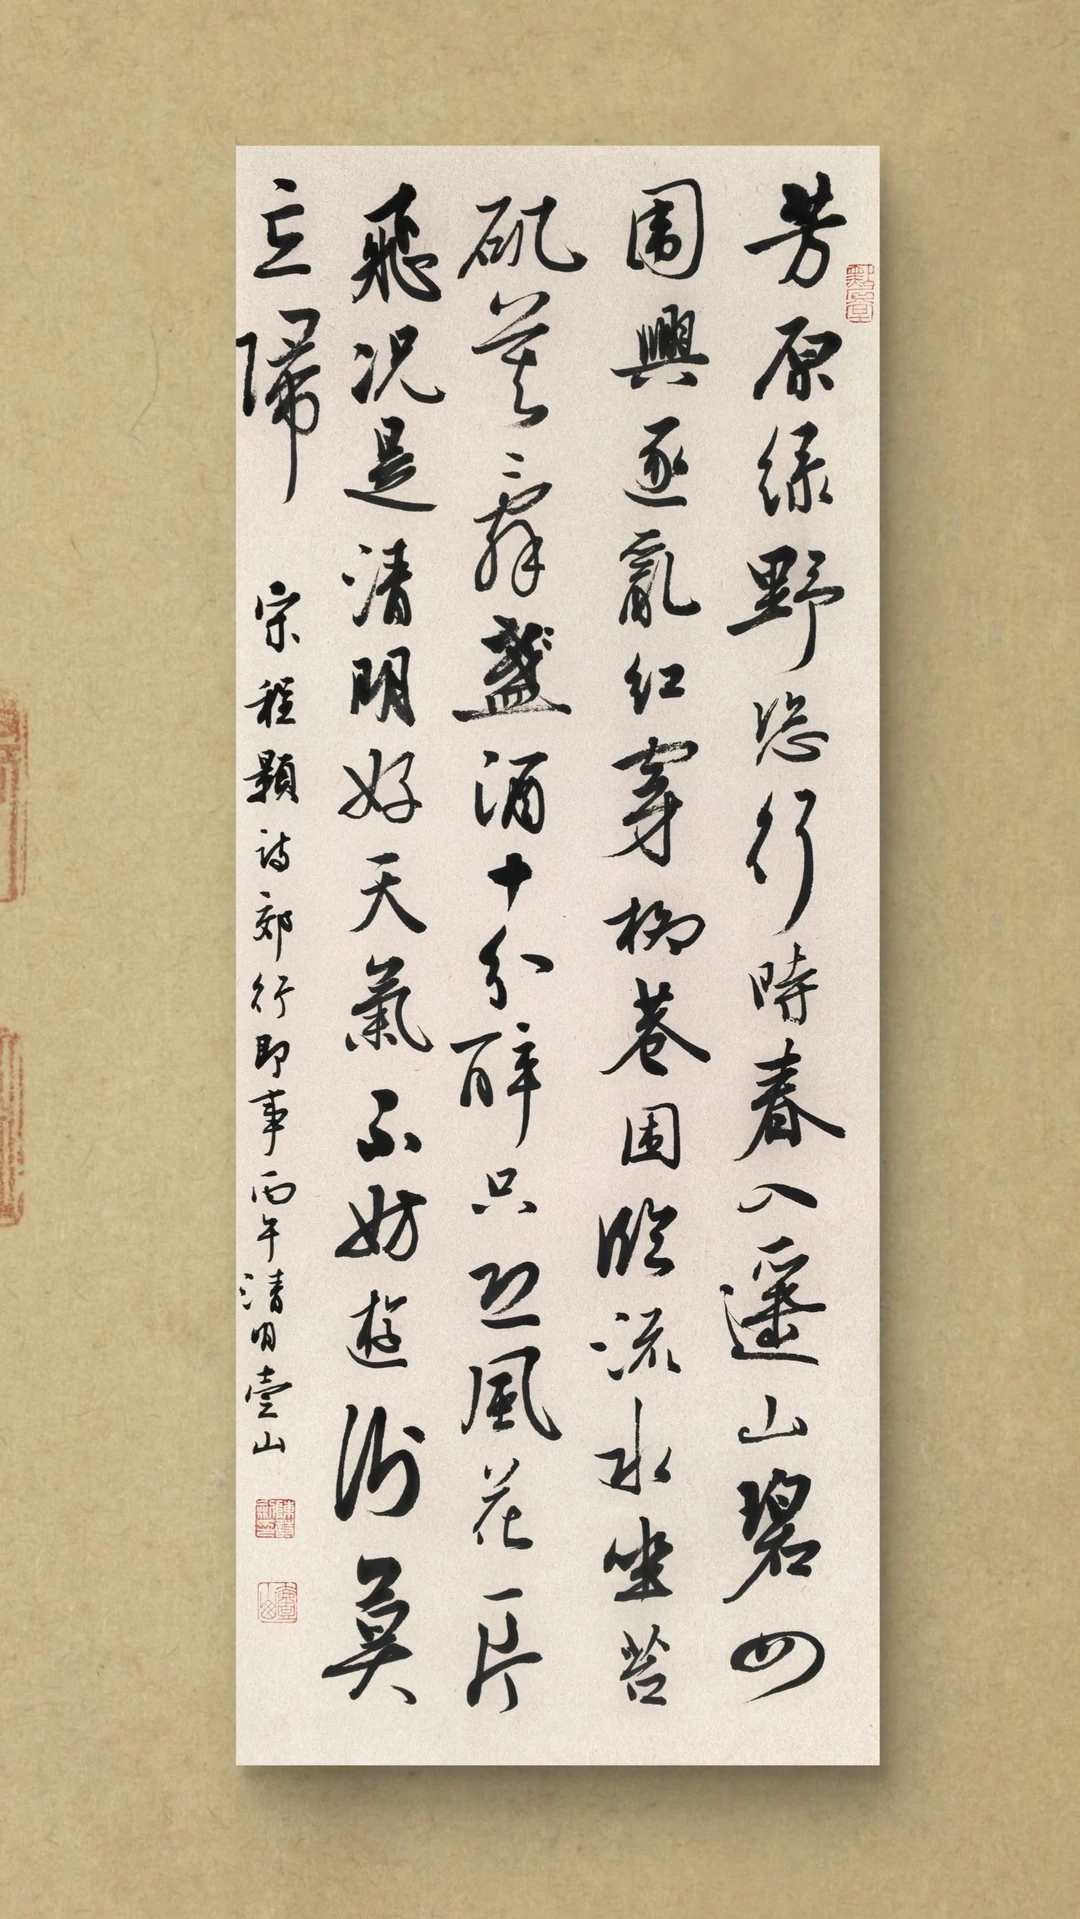 芳原綠野恣行時春入遥山碧四
圍興逐亂紅穿柳巷困臨流水坐苔
矶莫辭盞酒十分醉只恐風花一片
飛况是清明好天氣不妨遊衍莫
忘歸
宋程顥詩郊行即事丙午清明壹山